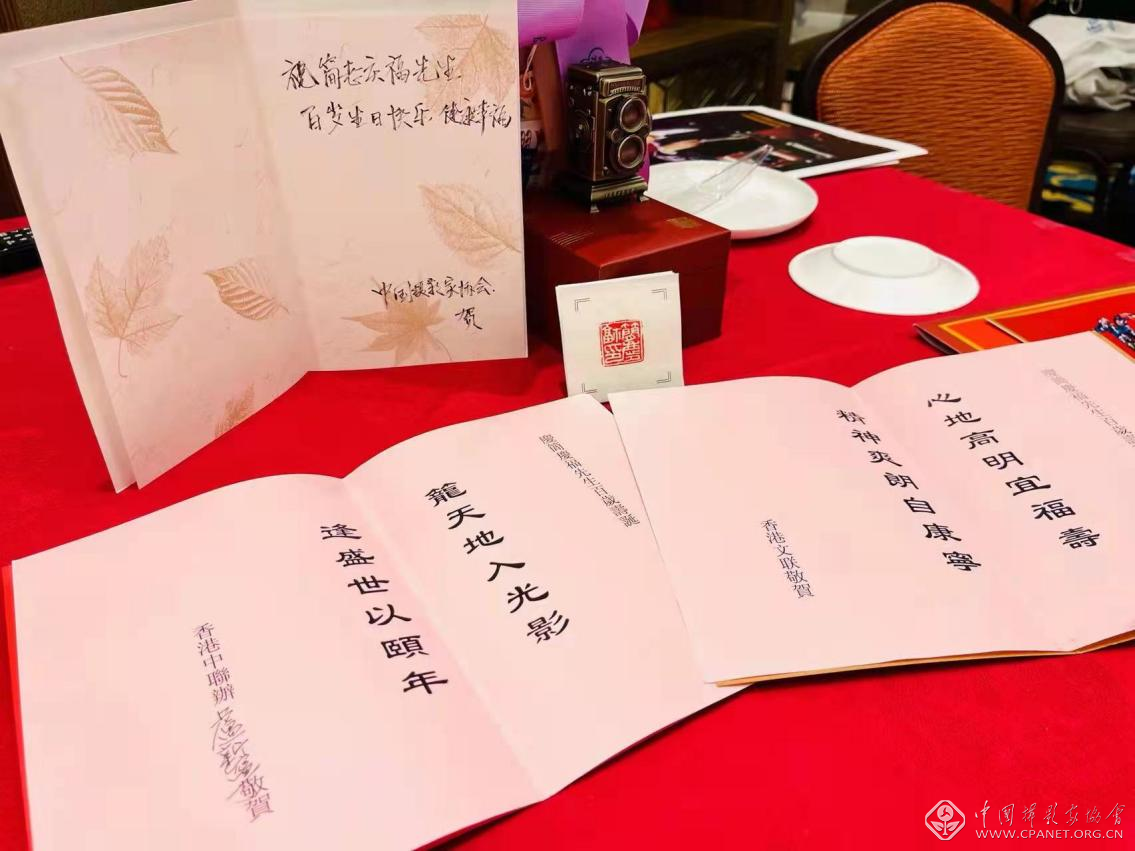 祝简志庆福先生
百岁生日快乐 健康幸福
中国摄影家协会
贺
簡慶福印
慶簡慶福先生百歲壽誕
籠天地入光影
逢盛世以頤年
香港中聯辦盧新寧敬賀
慶簡慶福先生百歲壽
心地高明宜福壽
精神爽朗自康寧
香港文联敬賀
中国摄影家協會
WWW.CPANET.ORG.CN